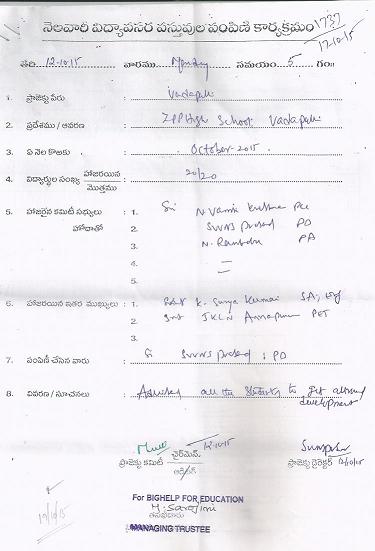 నెలవారీ విద్యావసర వస్తువుల పంపిణి కార్యక్రమం
1737
17-10-15
తేది 12-10-15 వారము Monday సమయం 5 గం॥
1. ప్రాజెక్టు పేరు Vadapalli
2. ప్రదేశము / ఆవరణ ZPP High School Vadapalli
3. ఏ నెల కొఱకు October-2015
4. విద్యార్థుల సంఖ్య హాజరయిన మొత్తము 20/20
5. హాజరైన కమిటి సభ్యులు హోదాతో
1. Sri N Vamsi Krishna
2. SVVNS Prasad PO
3. N. Rambabu PA
4.
5.
6. హాజరయిన ఇతర ముఖ్యులు :
1. K. Surya Kumari SA,
2. Smt JKLN Annapurna PET
3.
7. పంపిణీ చేసిన వారు Sri SVVNS Prasad : PO
8. వివరణ / సూచనలు Advised all the Students to get allround
development
12-10-15
ఛైర్మెన్
ప్రాజెక్టు కమిటి
ప్రాజెక్టు డైరెక్టర్ 12/10/15
For BIGHELP FOR EDUCATION
M. Sarojini
MANAGING TRUSTEE